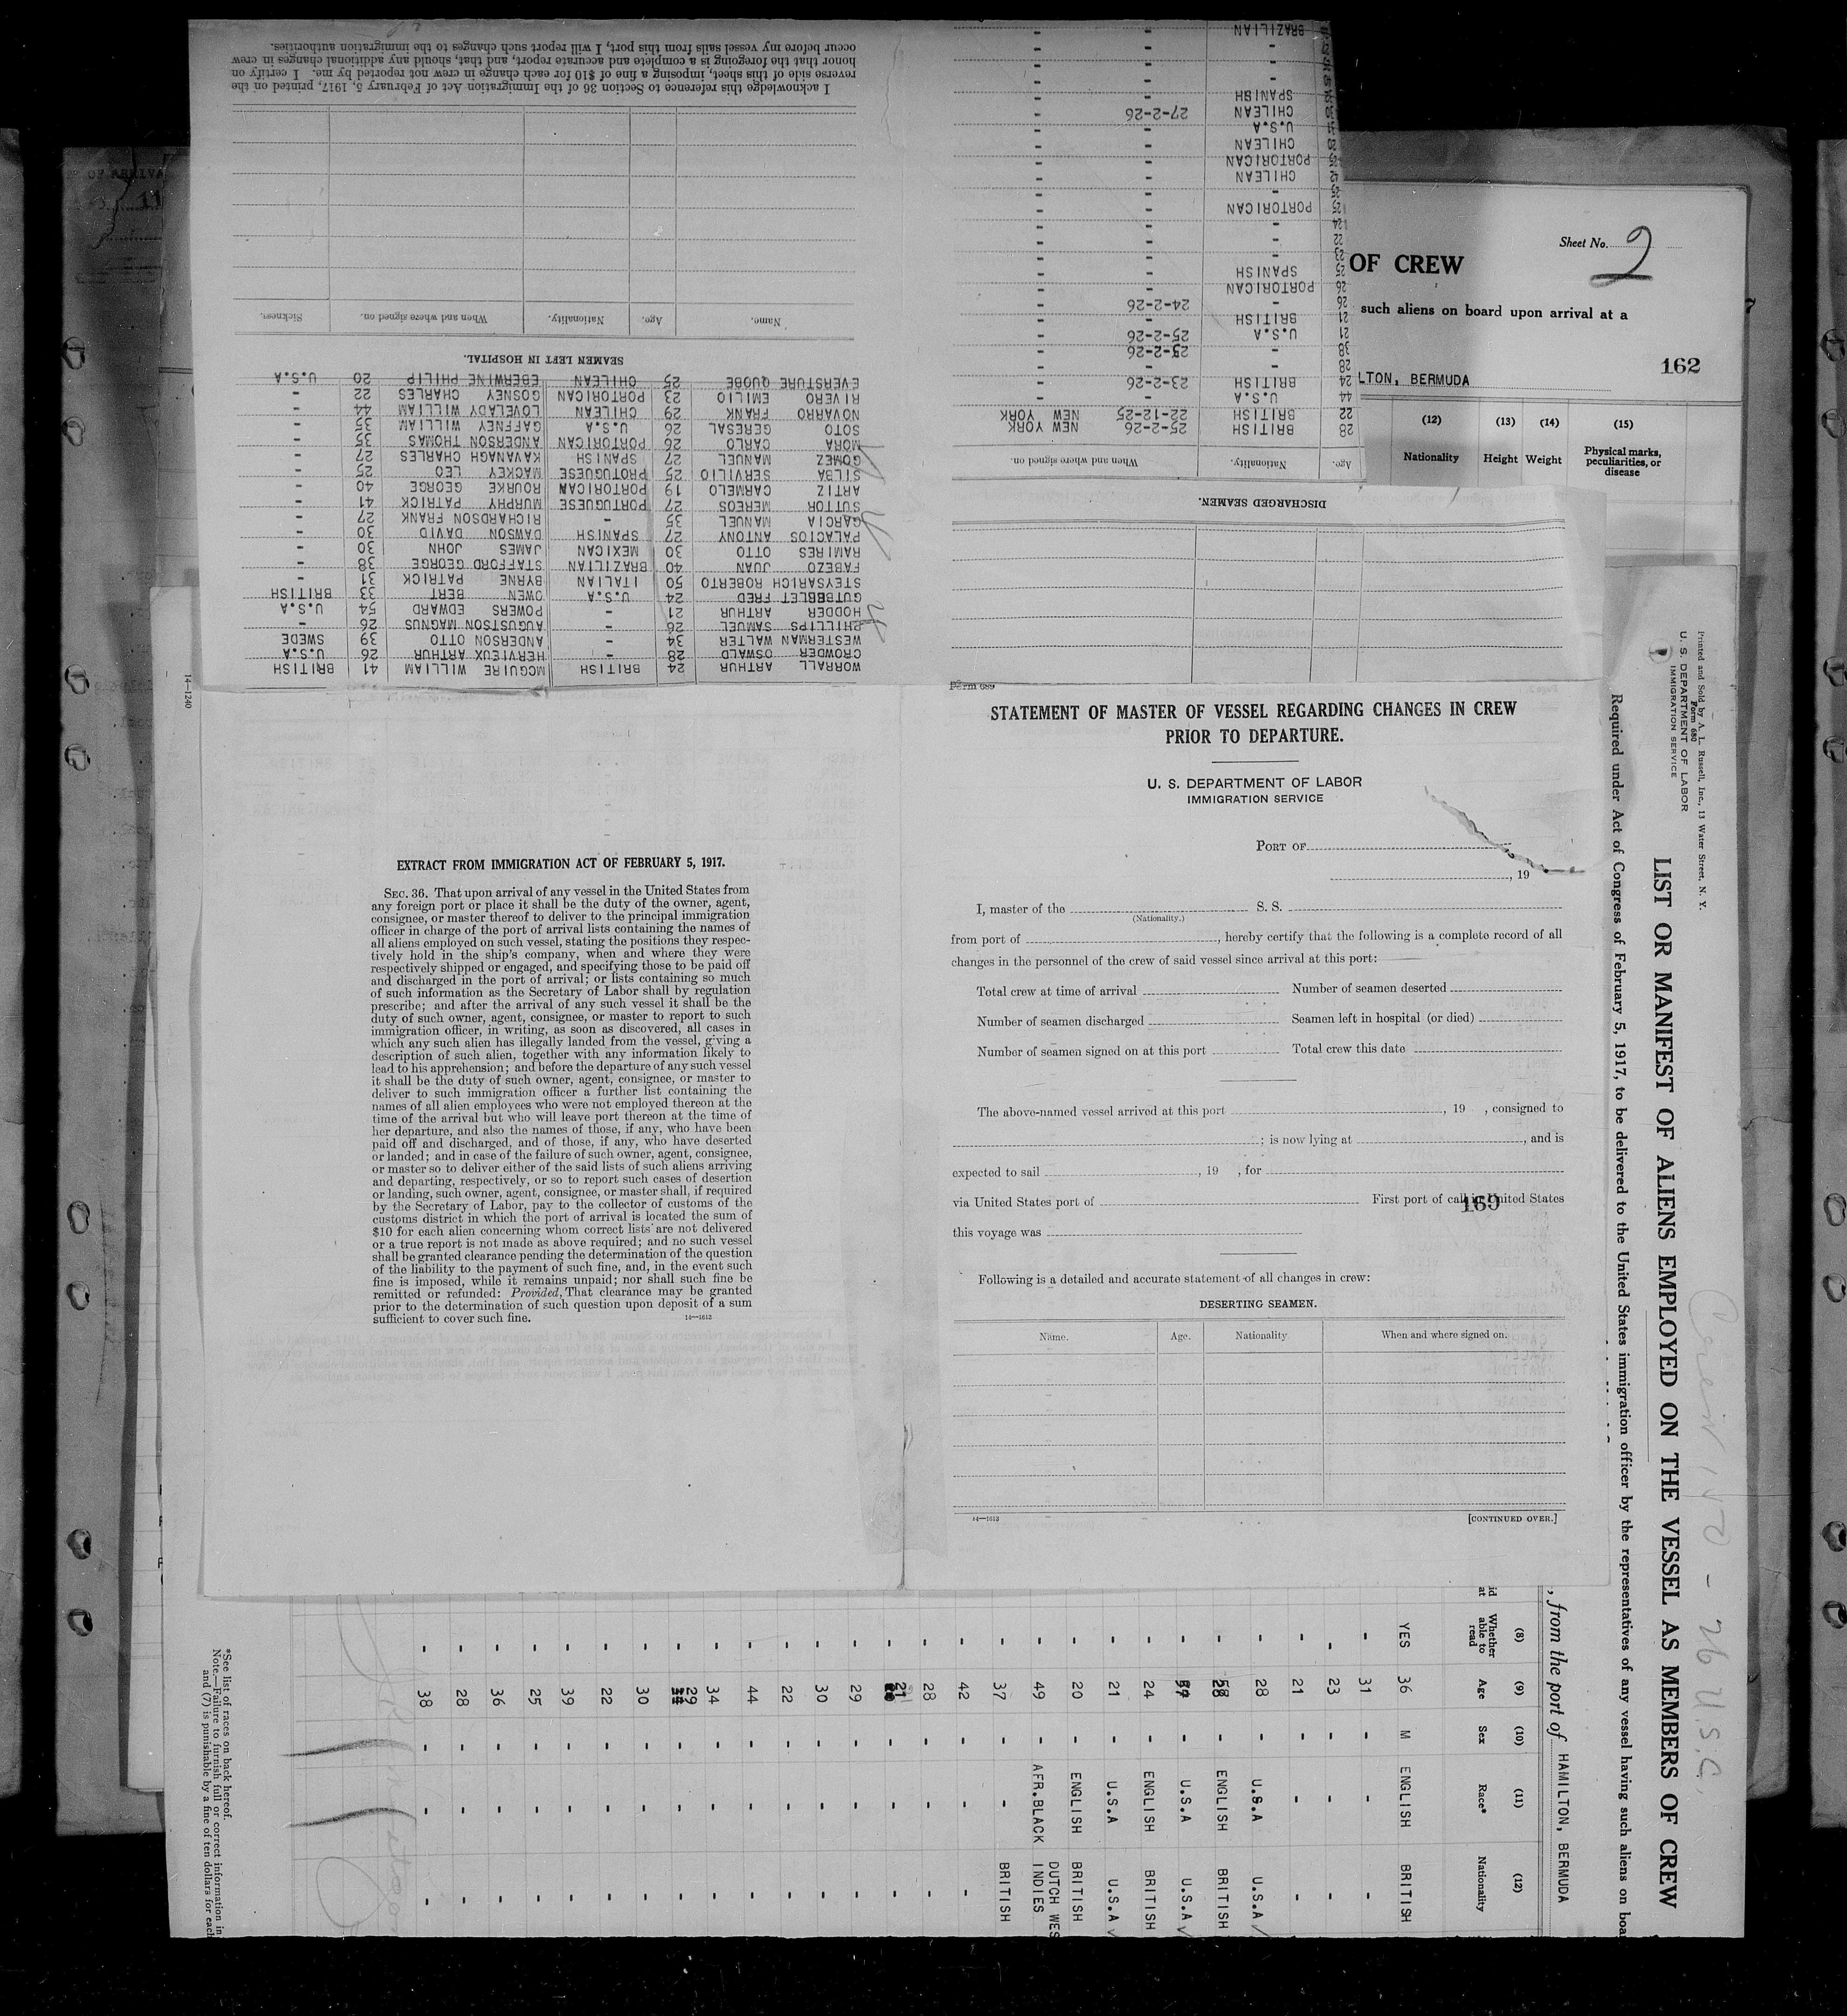 Sheet No. 2
OF CREW
such aliens on board upon arrival at a
162
LTON, BERMUDA
(12) (13) (14) (15)
Nationality Height Weight Physical marks,
peculiarities, or
disease
DISCHARGED SEAMEN.
Age. Nationality. When and where signed on.
28 BRITISH 25-2-26 NEW YORK
22 BRITISH 22-12-25 NEW YORK
44 U.S.A - -
24 BRITISH 23-2-26 -
28 - - -
38 - 25-2-26 -
21 U.S.A 25-2-26 -
21 BRITISH - -
26 - 24-2-26 -
26 PORTORICAN - -
SPANISH - -
- - -
22 - - -
24 - - -
PORTORICAN - -
- - -
CHILEAN - -
PORTORICAN - -
CHILEAN - -
U.S.A - -
CHILEAN 27-2-26 -
SPANISH - -
- - -
- - -
- - -
BRAZILIAN - -
WORRALL ARTHUR 24 BRITISH MCGUIRE WILLIAM 41 BRITISH
CROWDER OSWALD 28 - HERVIEUX ARTHUR 26 U.S.A
WESTERMAN WALTER 34 - ANDERSON OTTO 39 SWEDE
PHILLIPS SAMUEL 26 - AUGUSTSON MAGNUS 26 -
HODDER ARTHUR 21 - POWERS EDWARD 54 U.S.A
GUTBBLET FRED 24 U.S.A OWEN BERT 33 BRITISH
STEYSARICH ROBERTO 50 ITALIAN BYRNE PATRICK 31 -
FABEZO JUAN 40 BRAZILIAN STAFFORD GEORGE 38 -
RAMIRES OTTO 30 MEXICAN JAMES JOHN 30 -
PALACIOS ANTONY 27 SPANISH DAWSON DAVID 30 -
GARCIA MANUEL 35 - RICHARDSON FRANK 27 -
SUTTOR MEREOS 27 PORTUGUESE MURPHY PATRICK 41 -
ARTIZ CARMELO 19 PORTORICAN ROURKE GEORGE 40 -
SILBA SERVILIO 25 PROTUGUESE MACKEY LEO 25 -
GOMEZ MANUEL 27 SPANISH KAVANAGH CHARLES 27 -
MORA CARLO 26 PORTORICAN ANDERSON THOMAS 35 -
SOTO GERESAL 26 U.S.A GAFFNEY WILLIAM 35 -
NOVARRO FRANK 29 CHILEAN LOVELADY WILLIAM 44 -
RIVERO EMILIO 23 PORTORICAN GOSNEY CHARLES 22 -
EVERSTURE QUOBE 25 CHILEAN EBERWINE PHILIP 20 U.S.A
SEAMEN LEFT IN HOSPITAL.
Name. Age. Nationality. When and where signed on. Sickness.
I acknowledge this reference to Section 36 of the Immigration Act of February 5, 1917, printed on the
reverse side of this sheet, imposing a fine of $10 for each change in crew not reported by me. I certify on
honor that the foregoing is a complete and accurate report, and that, should any additional changes in crew
occur before my vessel sails from this port, I will report such changes to the immigration authorities.
14—1240
EXTRACT FROM IMMIGRATION ACT OF FEBRUARY 5, 1917.
SEC. 36. That upon arrival of any vessel in the United States from
any foreign port or place it shall be the duty of the owner, agent,
consignee, or master thereof to deliver to the principal immigration
officer in charge of the port of arrival lists containing the names of
all aliens employed on such vessel, stating the positions they respec-
tively hold in the ship's company, when and where they were
respectively shipped or engaged, and specifying those to be paid off
and discharged in the port of arrival; or lists containing so much
of such information as the Secretary of Labor shall by regulation
prescribe; and after the arrival of any such vessel it shall be the
duty of such owner, agent, consignee, or master to report to such
immigration officer, in writing, as soon as discovered, all cases in
which any such alien has illegally landed from the vessel, giving a
description of such alien, together with any information likely to
lead to his apprehension; and before the departure of any such vessel
it shall be the duty of such owner, agent, consignee, or master to
deliver to such immigration officer a further list containing the
names of all alien employees who were not employed thereon at the
time of the arrival but who will leave port thereon at the time of
her departure, and also the names of those, if any, who have been
paid off and discharged, and of those, if any, who have deserted
or landed; and in case of the failure of such owner, agent, consignee,
or master so to deliver either of the said lists of such aliens arriving
and departing, respectively, or so to report such cases of desertion
or landing, such owner, agent, consignee, or master shall, if required
by the Secretary of Labor, pay to the collector of customs of the
customs district in which the port of arrival is located the sum of
$10 for each alien concerning whom correct lists are not delivered
or a true report is not made as above required; and no such vessel
shall be granted clearance pending the determination of the question
of the liability to the payment of such fine, and, in the event such
fine is imposed, while it remains unpaid; nor shall such fine be
remitted or refunded: Provided, That clearance may be granted
prior to the determination of such question upon deposit of a sum
sufficient to cover such fine.
14—1613
Form 689
STATEMENT OF MASTER OF VESSEL REGARDING CHANGES IN CREW
PRIOR TO DEPARTURE.
U. S. DEPARTMENT OF LABOR
IMMIGRATION SERVICE
PORT OF
, 19
I, master of the S. S.
(Nationality.)
from port of , hereby certify that the following is a complete record of all
changes in the personnel of the crew of said vessel since arrival at this port:
Total crew at time of arrival Number of seamen deserted
Number of seamen discharged Seamen left in hospital (or died)
Number of seamen signed on at this port Total crew this date
The above-named vessel arrived at this port , 19 , consigned to
; is now lying at , and is
expected to sail , 19 , for
via United States port of First port of call in United States
169
this voyage was
Following is a detailed and accurate statement of all changes in crew:
DESERTING SEAMEN.
Name. Age. Nationality When and where signed on.
14—1613 [CONTINUED OVER.]
Printed and Sold by A. L. Russell, Inc., 13 Water Street, N. Y.
Form 680
U. S. DEPARTMENT OF LABOR
IMMIGRATION SERVICE
LIST OR MANIFEST OF ALIENS EMPLOYED ON THE VESSEL AS MEMBERS OF CREW
Required under Act of Congress of February 5, 1917, to be delivered to the United States immigration officer by the representatives of any vessel having such aliens on boa
, from the port of HAMILTON, BERMUDA
(8) (9) (10) (11) (12)
Whether able to read Age Sex Race* Nationality
YES 36 M ENGLISH BRITISH
- 31 - - -
- 23 - - -
- 21 - - -
- 28 - U.S.A U.S.A
- 28 - ENGLISH BRITISH
- - U.S.A U.S.A
- 24 - ENGLISH BRITISH
- 21 - U.S.A U.S.A
- 20 - ENGLISH BRITISH
- 49 - AFR.BLACK DUTCH WES
INDIES
- 37 - - BRITISH
- 42 - - -
- 28 - - -
- 21 - - -
- 29 - - -
- 30 - - -
- 22 - - -
- 44 - - -
- 34 - - -
- 29 - - -
- 30 - - -
- 22 - - -
- 39 - - -
- 25 - - -
- 36 - - -
- 28 - - -
- 38 - - -
*See list of races on back hereof.
Note.—Failure to furnish full or correct information in
and (7) is punishable by a fine of ten dollars for each